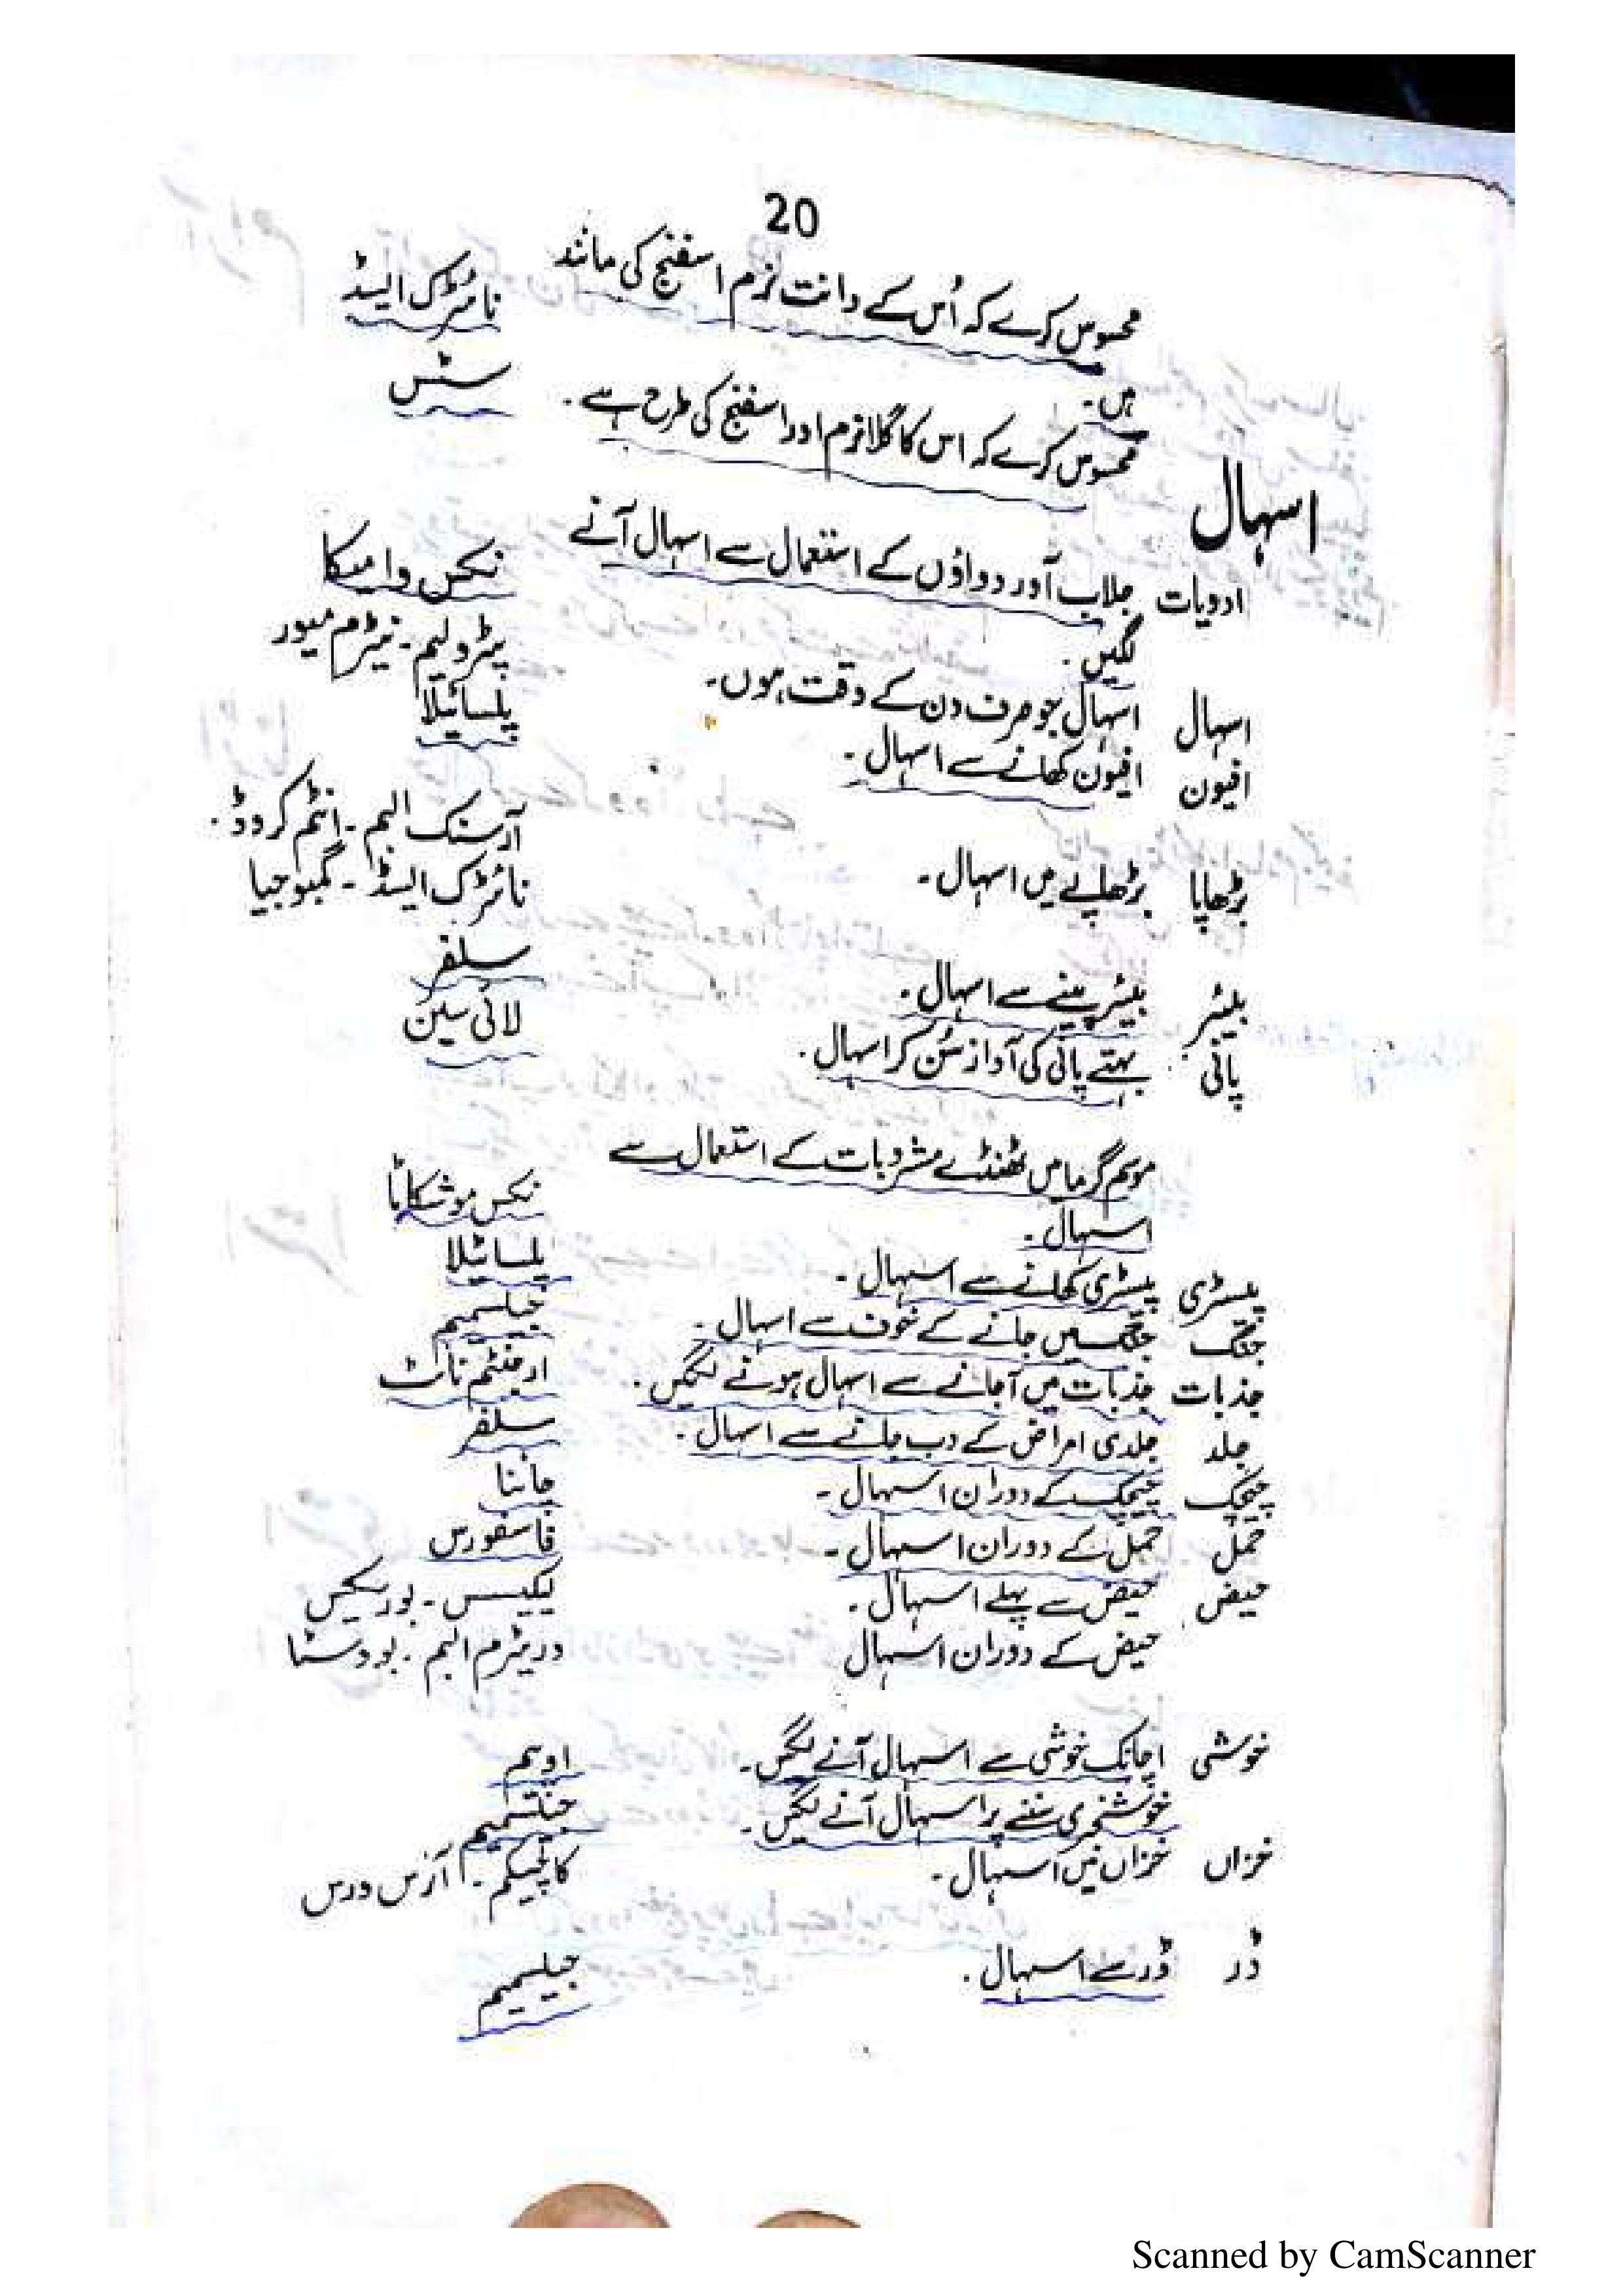 20
محسوس کرے کہ اُس کے دانت نرم اسفنج کی مانند نائٹرک ایسڈ
ہیں۔
محسوس کرے کہ اس کا گلا نرم اور اسفنج کی طرح ہے۔
اسہال
ادویات جلاب آور دواؤں کے استعمال سے اسہال آنے نکس وامیکا
لگیں۔
اسہال اسہال جو صرف دن کے وقت ہوں۔ پٹرولیم۔ نیٹرم میور
افیون افیون کھانے سے اسہال۔ پلساٹیلا
بڑھاپا بڑھاپے میں اسہال۔ آرسنک البم۔ انٹم کروڈ۔
نائٹرک ایسڈ۔ گمبوجیا
بیئر بیئر پینے سے اسہال۔ سلفر
پانی بہتے پانی کی آواز سُن کر اسہال۔ لائی سین
موسم گرما میں ٹھنڈے مشروبات کے استعمال سے نکس موشکاٹا
اسہال۔
پیسٹری پیسٹری کھانے سے اسہال۔ پلساٹیلا
جنگ جنگ میں جانے کے خوف سے اسہال۔ جیلسمیم
جذبات جذبات میں آجانے سے اسہال ہونے لگیں۔ ارجنٹم نائٹ
جلد جلدی امراض کے دب جانے سے اسہال۔ سلفر
چیچک چیچک کے دوران اسہال۔ چائنا
حمل حمل کے دوران اسہال۔ فاسفورس
حیض حیض سے پہلے اسہال۔ لیکیسس۔ بوریکس
حیض کے دوران اسہال وریٹرم البم۔ بووسٹا
خوشی اچانک خوشی سے اسہال آنے لگیں۔ اوپیم
خوشخبری سننے پر اسہال آنے لگیں۔ جیلسمیم
خزاں خزاں میں اسہال۔ کالچیکم۔ آئرس ورس
ڈر ڈر سے اسہال۔ جیلسمیم
Scanned by CamScanner